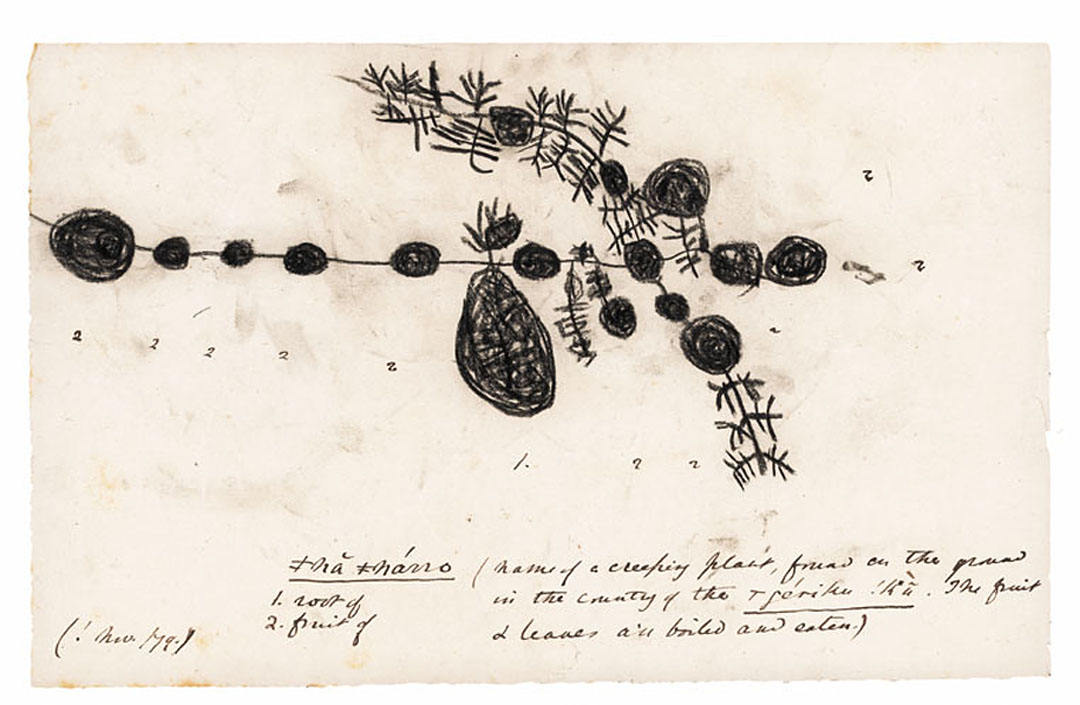 2
2
2 2 2 2 2 2
1. 2 2
ǂnă ǂnárro (name of a creeping plant, found on the ground
1. root of in the country of the !kū. The fruit
2. fruit of & leaves are boiled and eaten.)
(!